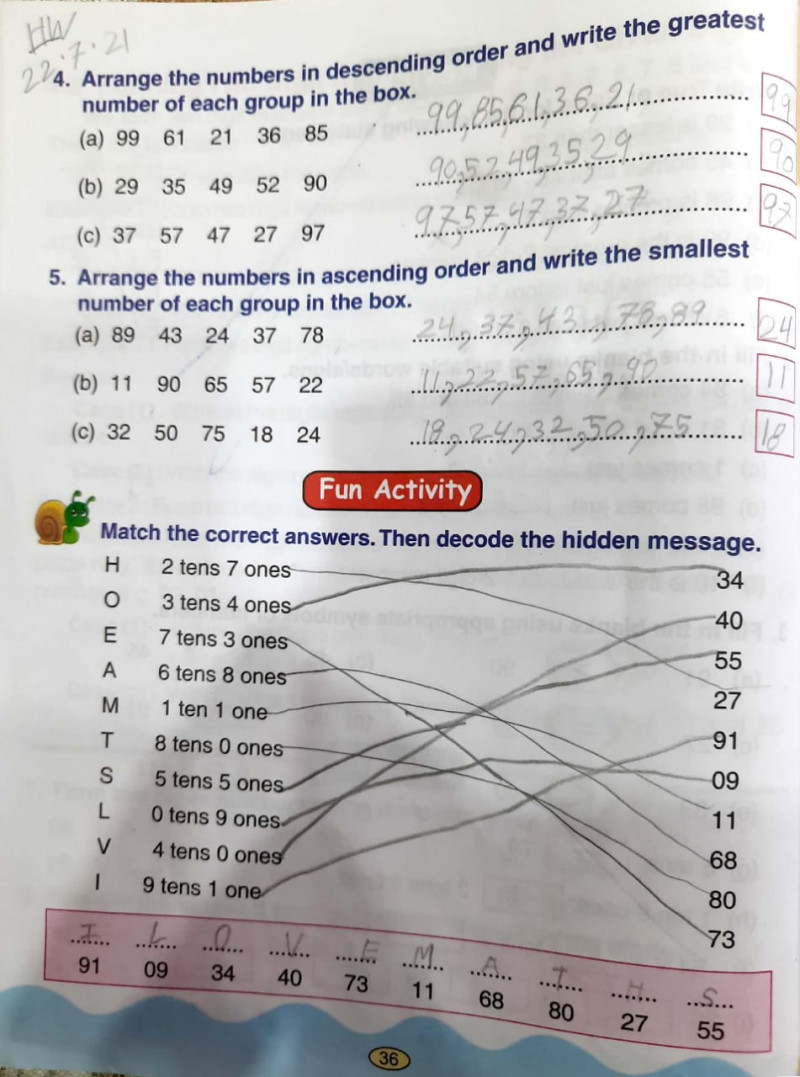 HW
22.7.21
4. Arrange the numbers in descending order and write the greatest
number of each group in the box.
(a) 99 61 21 36 85 99,85,61,36,21 99
(b) 29 35 49 52 90 90,52,49,35,29 90
(c) 37 57 47 27 97 97,57,47,37,27 97
5. Arrange the numbers in ascending order and write the smallest
number of each group in the box.
(a) 89 43 24 37 78 24,37,43,78,89 24
(b) 11 90 65 57 22 11,22,57,65,90 11
(c) 32 50 75 18 24 18,24,32,50,75 18
Fun Activity
Match the correct answers. Then decode the hidden message.
H 2 tens 7 ones 34
O 3 tens 4 ones 40
E 7 tens 3 ones 55
A 6 tens 8 ones 27
M 1 ten 1 one 91
T 8 tens 0 ones 09
S 5 tens 5 ones 11
L 0 tens 9 ones 68
V 4 tens 0 ones 80
I 9 tens 1 one 73
I L O V E M A T H S
91 09 34 40 73 11 68 80 27 55
36